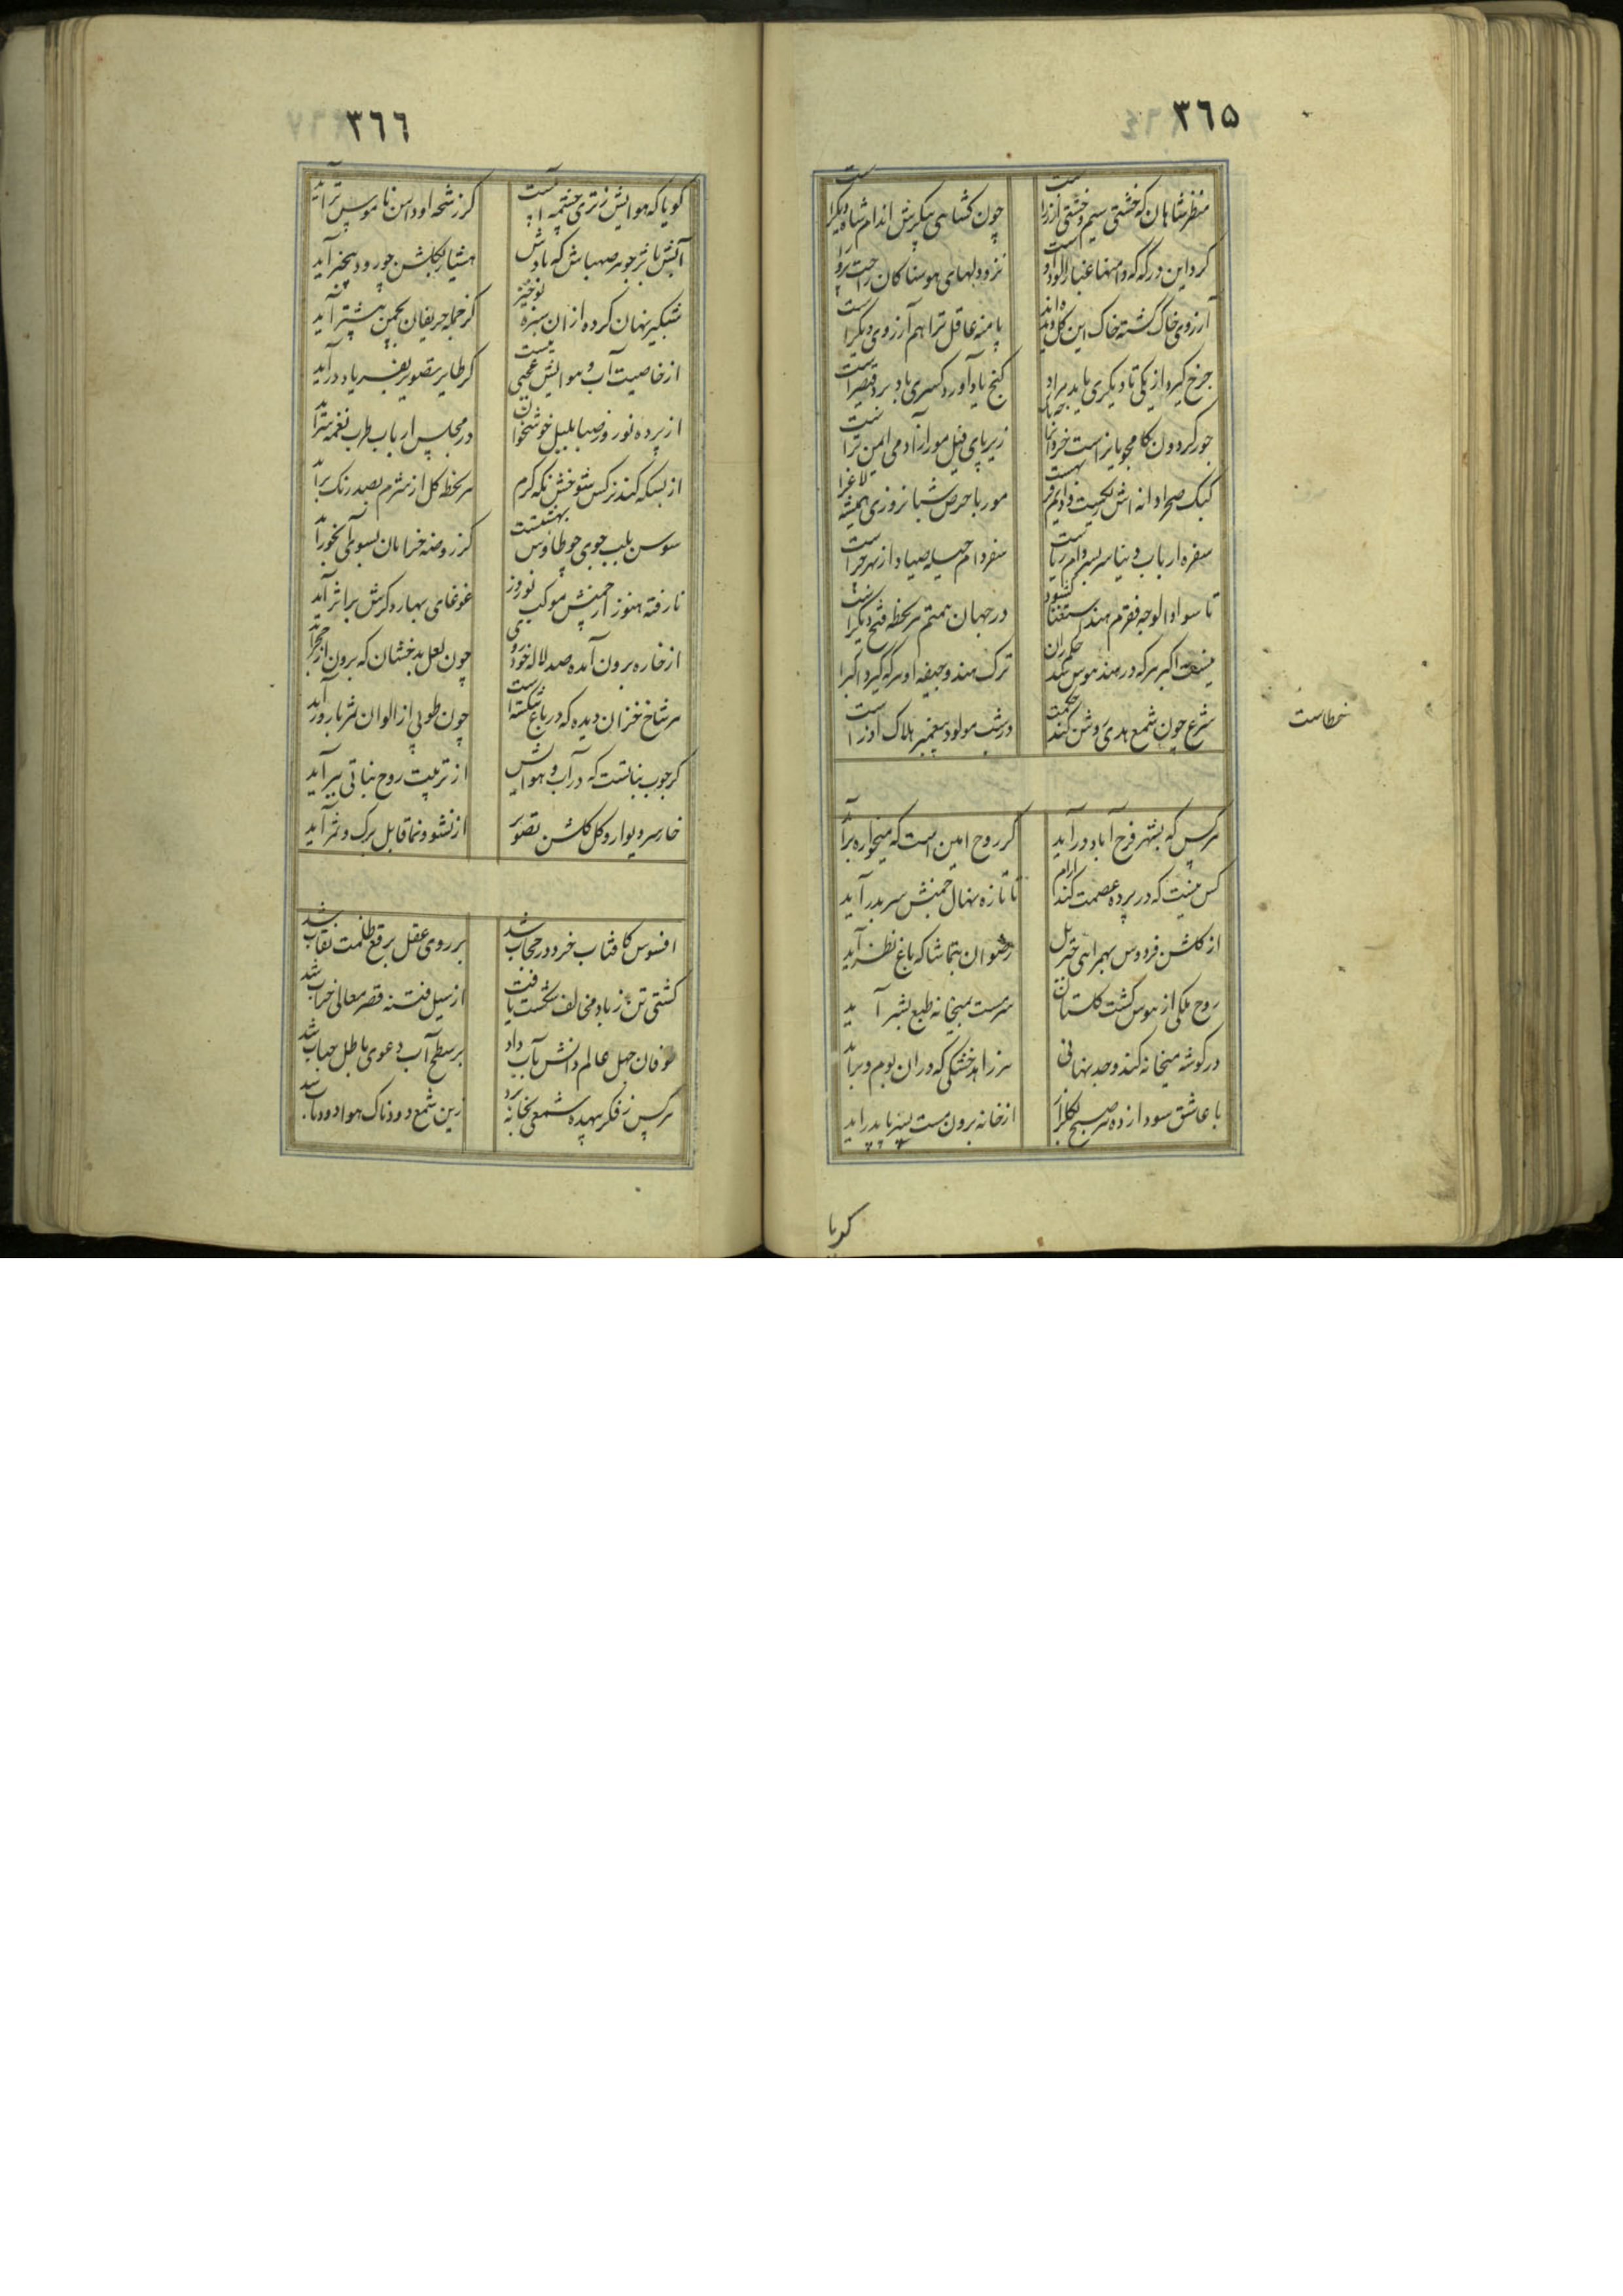 ٣٦٥
منظر شاهان که خشتی سیم و خشتی از زرست
چون کشاهی پیکرش اندام شاه دیگرست
گرد این درگه که دامنها غبار آلود اوست
آرزوی خاک گشته خاک این
پا منه عاقل ترا هم آرزوی دیگرست
چرخ گیرد از یکی تا دیگری باید مراد
گنج باد آورد کسری باد برد قیصرست
جور گردون
زیر پای فیل مور از آدمی ایمن ترست
مور با حرص شبانروزی همیشه لاغرست
سفره ارباب دنیا سر بسر دام ریاست
سفره دام حیله صیاد از بهر
تا سواد الوجه فقرم هند استغنا گشود
در جهان همتم هر لحظه فتح دیگرست
ترک هند و جیفه او هر که گیرد اکبرست
شرع چون شمع هدی روشن کند
در شب مولود پیغمبر هلاک آذرست
خطاست
هر کس که بشهر فرح آباد در آید
گر روح امین است که میخواره بر آید
کس نیست که در پرده عصمت کند آرام
تا تازه نهال چمنش سر بدر آید
از گلشن فردوس بهمراهی جبریل
رضوان بتماشا که باغ نظر آید
روح ملکی از هوس گشت گلستان
سرمست بمیخانه طبع بشر آید
در گوشه میخانه کند وجد نهانی
هر زاهد خشکی که در ان بوم و بر آید
با عاشق سودازده هر صبح بگلزار
از خانه برون مست پسر با پدر آید
گویا
٣٦٦
گویا که هوایش ز تری چشمه آبست
کز رشحه او دامن ناموس تر آید
آبش باثر جوهر صهباش که بادش
هشیار بگلشن چو رود بیخبر آید
شبگیر نهان کرده از ان سبزه نوخیز
کز جمله حریفان بچمن پیشتر آید
از خاصیت آب و هوایش عجبی نیست
گر طایر تصویر بفریاد در آید
از پرده نوروز صبا بلبل خوشخوان
در مجلس ارباب طرب نغمه سر آید
از بسکه کند نرگس شوخش نگه گرم
هر لحظه گل از شرم بصد رنگ بر آید
سوسن بلب جوی چو طاوس بهشتست
کز روضه خرامان بسوی آبخور آید
نارفته هنوز از چمنش موکب نوروز
غوغای بهار دگرش بر اثر آید
از خاره برون آمده صد لاله خودروی
چون لعل بدخشان که برون از حجر آید
هر شاخ خزان دیده که در باغ شکسته است
چون طوبی از الوان ثمر بارور آید
گر چوب نباتست که در آب و هوایش
از تربیت روح نباتی ببر آید
خار سر دیوار و گل گلشن تصویر
از نشو و نما قابل برگ و ثمر آید
افسوس کافتاب خرد در حجاب شد
بر روی عقل برقع ظلمت نقاب شد
کشتی تن ز باد مخالف شکست یافت
از سیل فتنه قصر معالی خراب شد
طوفان جهل عالم دانش بآب داد
بر سطح آب دعوی باطل حباب شد
هر کس ز فکر بیهده شمعی بخانه برد
زین شمع دودناک هوا دود